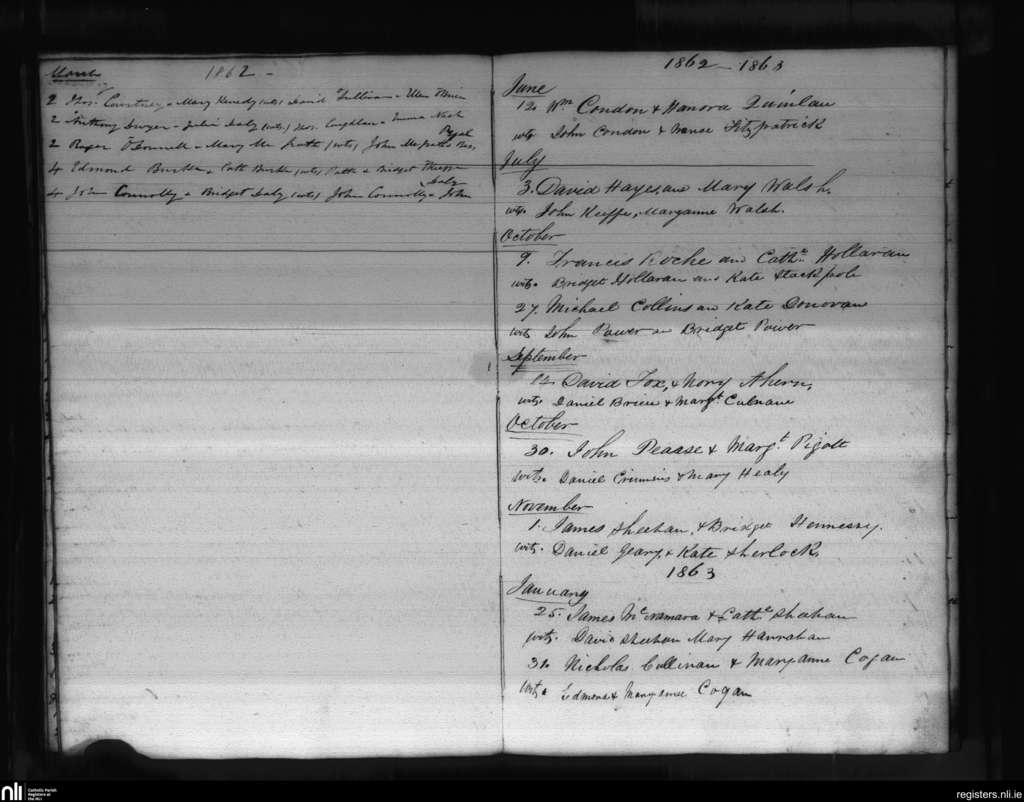 March 1862 -
2 Thos. Courtney & Mary Kenedy (wts) David Sullivan & Ellen Brien
2 Anthony Dwyer & Julia Daly (wts) Thos. Coughlan & Nash
2 Roger O'Connell & Mary Mc Grath (wts) John McGrath
4 Edmond Burke & Cath Burke (wts) Patk & Bridget
4 John Connolly & Bridget Daly (wts) John Connolly & John Daly
1862 - 1863
June
12. Wm Condon & Hanora Quinlan
wts. John Condon & Fitzpatrick
July
3. David Hayes, and Mary Walsh.
wts. John Keeffe, Maryanne Walsh.
October
9. Francis Roche and Cathe. Hollaran
wts. Bridget Hollaran and Kate Stackpole
27. Michael Collins an Kate Donovan
wts John Power an Bridget Power
September
12. David Fox, & Nory Ahern,
wts. Daniel Brien & Margt. Culnane
October
30. John Pease & Margt. Pigott
wts. Daniel Crimins & Mary Healy
November
1. James Sheehan, & Bridget Hennessy.
wts. Daniel Geary, & Kate Sherlock,
1863
January
25. James McNamara & Cathe Shahan
wts. David Sheehan Mary Hanrahan
31. Nicholas Cullinan & Maryanne Cogan
wts. Edmond & Maryanne Cogan
nli Catholic Parish
Registers at
the NLI
registers.nli.ie